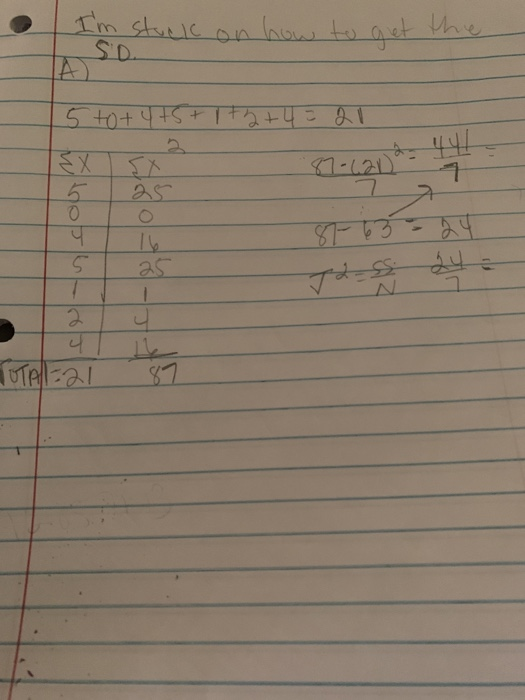 I'm stuck on how to get the
SD.
A)
5+0+4+5+1+2+4=21
ΣX ΣX²
5 25
0 0
4 16
5 25
1 1
2 4
4 16
TOTAl=21 87
87-(21)²/7 = 441/7 =
87-63=24
σ²=SS/N 24/7 =